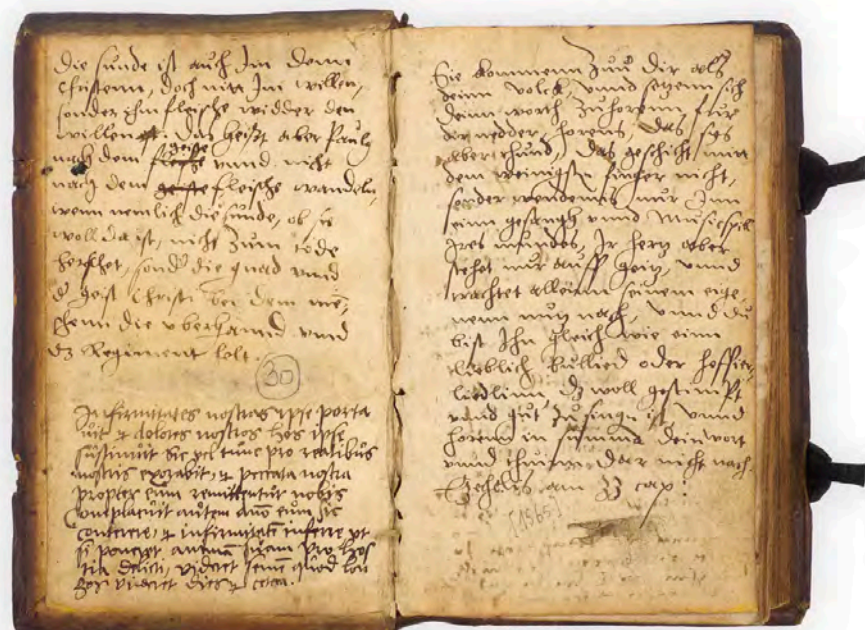 die sunde ist auch Im dome
Christenn, doch nitt Im willen,
sonder ihm fleische widder den
willen. Das heist aber Pauls
geiste
nach dem fleische vnnd nicht
nach dem geiste fleische wandeln,
wenn nemlich die sunde, ob sie
woll da ist, nicht zum tode
herschet, sond die gnad vnnd
d geist Christi bei dem men,
schenn die vberhannd vnnd
dz Regiment
30
Infirmitates nostras ipse porta
uit et dolores nostros hos ipse
sustinuit pro reatibus
nostris exorabit, et peccata nostra
propter eum remittentur nobis
Complacuit autem eum sic
conterere, et infirmitate inferre vt
si poneret animam suam pro hos
tia delicti, videret semen
videret dies et cetera.
Sie kommenn zuu dir als
deinn volck, vnnd setzenn sich
deinn wort zuhorenn, fur
dir nedder, horens, Das sies
aber thund, Das geschicht mitt
dem weinigstn finger nicht,
sonder wendens nur Inn
einn gesangh vnnd Musicspiel
Ires mundes, Ir hertz aber
stehet nur auff geitz, vnnd
trachtet alleinn seinem eige,
nenn nutz nach, vnnd du
bist Ihn gleich wie einn
lieblich Bullied oder hoffier,
liedlinn, dz woll gestimpt
vnnd gut zu singn ist, vnnd
horenn in summa dein wort
vnnd thunn dar nicht nach.
am 33 cap:
[1565]